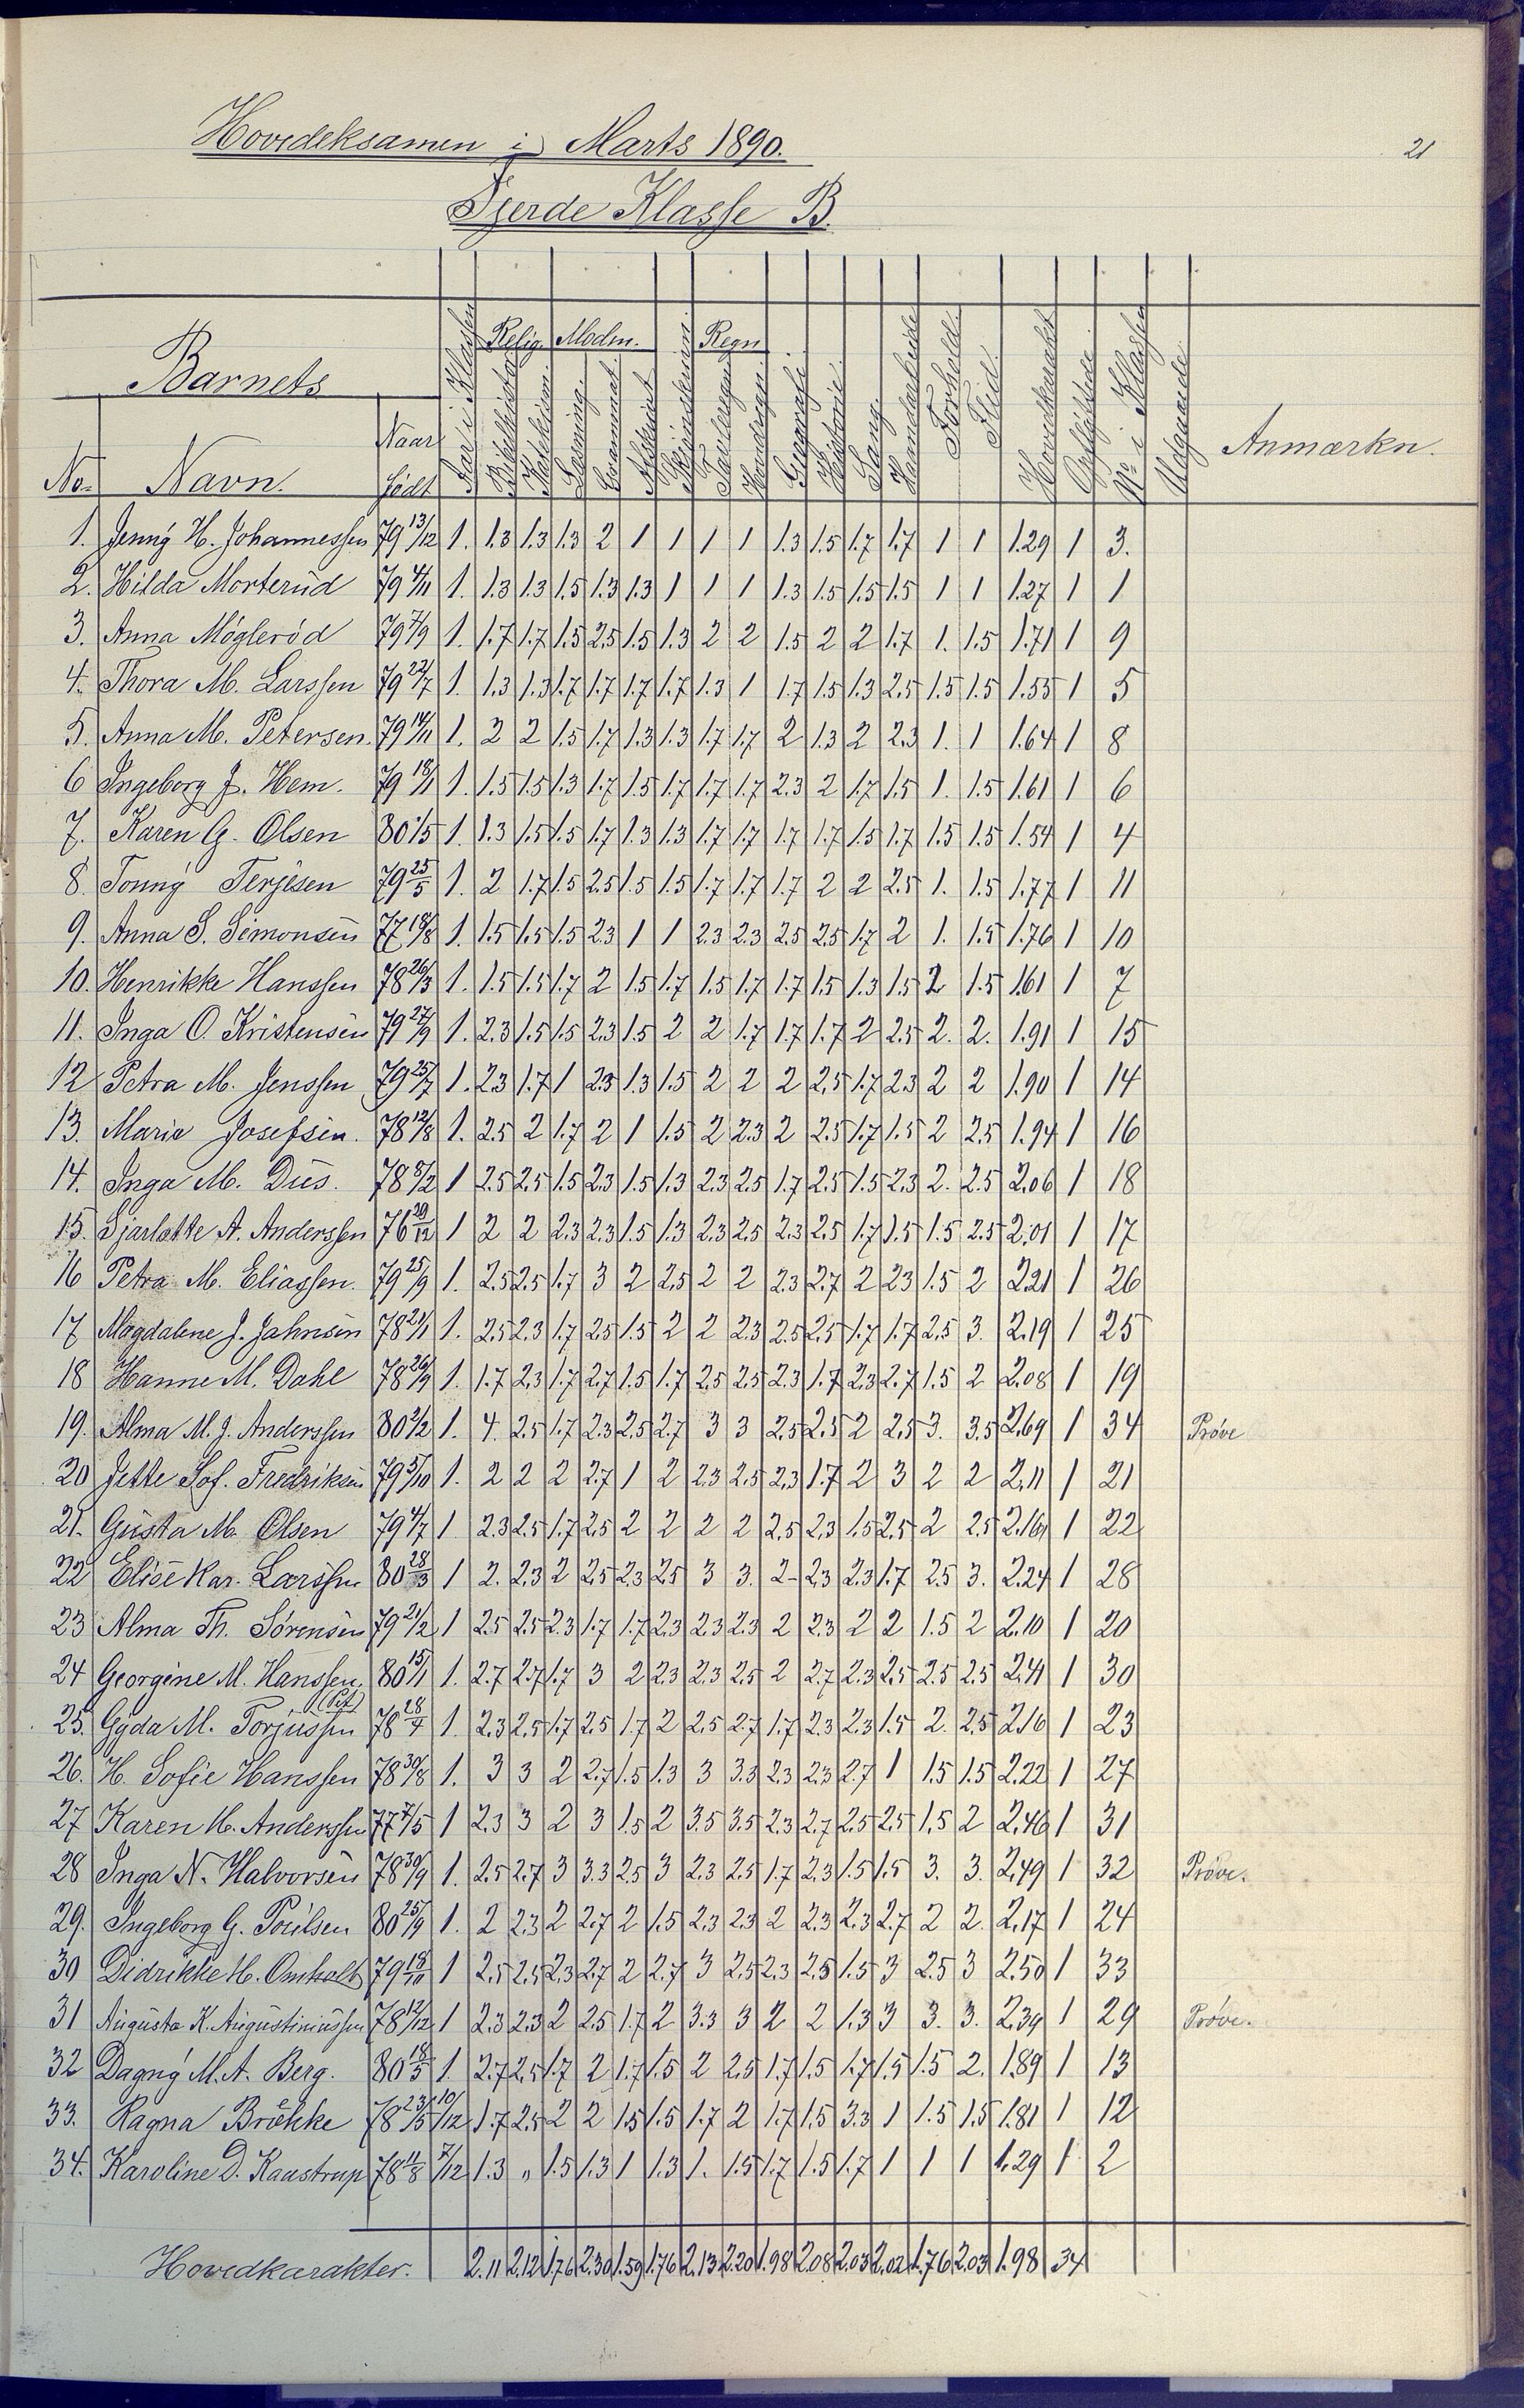 21
Hovedeksamen i Marts 1890.
Fjerde Klasse B.
Barnets
No. Navn. Naar født Aar i Klassen Relig. Bibelhistorie Katekism. Modm. Læsning. Grammat Afskrivt Skjønskrivn. Regn Tavleregn Hovedregn Geografi Historie Sang. Haandarbeide Forhold. Flid. Hovedkarakt Opflyttede. No. i Klassen Udgaaede Anmærkn.
1. Jenny H. Johannessen 79 13/12 1. 1.3 1.3 1.3 2 1 1 1 1 1.3 1.5 1.7 1.7 1 1 1.29 1 3.
2. Hilda Morterud 79 4/11 1. 1.3 1.3 1.5 1.3 1.3 1 1 1 1.3 1.5 1.5 1.5 1 1 1.27 1 1
3. Anna Mögleröd 79 7/9 1. 1.7 1.7 1.5 2.5 1.5 1.3 2 2 1.5 2 2 1.7 1. 1.5 1.71 1 9
4. Thora M. Larssen 79 22/7 1. 1.3 1.3 1.7 1.7 1.7 1.7 1.3 1 1.7 1.5 1.3 2.5 1.5 1.5 1.55 1 5
5. Anna M. Petersen. 79 14/11 1. 2 2 1.5 1.7 1.3 1.3 1.7 1.7 2 1.3 2 2.3 1. 1 1.64 1 8
6 Ingeborg J. Hem. 79 18/1 1. 1.5 1.5 1.3 1.7 1.5 1.7 1.7 1.7 2.3 2 1.7 1.5 1. 1.5 1.61 1 6
7. Karen G. Olsen 80 1/5 1. 1.3 1.5 1.5 1.7 1.3 1.3 1.7 1.7 1.7 1.7 1.5 1.7 1.5 1.5 1.54 1 4
8. Tonny Terjesen 79 25/5 1. 2 1.7 1.5 2.5 1.5 1.5 1.7 1.7 1.7 2 2 2.5 1. 1.5 1.77 1 11
9. Anna S. Simonsen 77 18/8 1. 1.5 1.5 1.5 2.3 1 1 2.3 2.3 2.5 2.5 1.7 2 1. 1.5 1.76 1 10
10. Henrikke Hanssen 78 26/3 1. 1.5 1.5 1.7 2 1.5 1.7 1.5 1.7 1.7 1.5 1.3 1.5 2 1.5 1.61 1 7
11. Inga O. Kristensen 79 27/9 1. 2.3 1.5 1.5 2.3 1.5 2 2 1.7 1.7 1.7 2 2.5 2. 2. 1.91 1 15
12 Petra M. Jenssen 79 25/7 1. 2.3 1.7 1 2.3 1.3 1.5 2 2 2 2.5 1.7 2.3 2 2 1.90 1 14
13. Marie Josefsen. 78 12/8 1. 2.5 2 1.7 2 1 1.5 2 2.3 2 2.5 1.7 1.5 2 2.5 1.94 1 16
14. Inga M. Dus. 78 8/2 1 2.5 2.5 1.5 2.3 1.5 1.3 2.3 2.5 1.7 2.5 1.5 2.3 2. 2.5 2.06 1 18
15. Sjarlotte A. Anderssen 76 29/12 1 2 2 2.3 2.3 1.5 1.3 2.3 2.5 2.3 2.5 1.7 1.5 1.5 2.5 2.01 1 17
16 Petra M. Eliassen. 79 25/9 1. 2.5 2.5 1.7 3 2 2.5 2 2 2.3 2.7 2 2.3 1.5 2 2.21 1 26
17 Magdalene J. Jahnsen 78 21/1 1. 2.5 2.3 1.7 2.5 1.5 2 2 2.3 2.5 2.5 1.7 1.7 2.5 3. 2.19 1 25
18 Hanne M. Dahl 78 26/9 1. 1.7 2.3 1.7 2.7 1.5 1.7 2.5 2.5 2.3 1.7 2.3 2.7 1.5 2 2.08 1 19
19. Alma M. J. Anderssen 80 2/2 1. 4. 2.5 1.7 2.3 2.5 2.7 3 3 2.5 2.5 2 2.5 3. 3.5 2.69 1 34 Prøve
20 Jette Sof. Fredriksen 79 5/10 1. 2 2 2 2.7 1 2 2.3 2.5 2.3 1.7 2 3 2 2 2.11 1 21
21. Gusta M. Olsen 79 4/7 1 2.3 2.5 1.7 2.5 2 2 2 2 2.5 2.3 1.5 2.5 2 2.5 2.16 1 22
22 Elise Kar. Larssen 80 28/3 1 2. 2.3 2 2.5 2.3 2.5 3 3. 2- 2.3 2.3 1.7 2.5 3. 2.24 1 28
23 Alma Th. Sørensen 79 21/2 1 2.5 2.5 2.3 1.7 1.7 2.3 2.3 2.3 2 2.3 2 2 1.5 2 2.10 1 20
24 Georgine M. Hanssen. 80 15/1 1. 2.7 2.7 1.7 3 2 2.3 2.3 2.5 2 2.7 2.3 2.5 2.5 2.5 2.41 1 30
25. Gyda M. Torjussen 78 28/4 1. 2.3 2.5 1.7 2.5 1.7 2 2.5 2.7 1.7 2.3 2.3 1.5 2. 2.5 2.16 1 23
26. H. Sofie Hanssen 78 30/8 1. 3 3 2 2.7 1.5 1.3 3 3.3 2.3 2.3 2.7 1 1.5 1.5 2.22 1 27
27 Karen M. Anderssen 77 7/5 1 2.3 3 2 3 1.5 2 3.5 3.5 2.3 2.7 2.5 2.5 1.5 2 2.46 1 31
28 Inga N. Halvorsen 78 30/9 1. 2.5 2.7 3 3.3 2.5 3 2.3 2.5 1.7 2.3 1.5 1.5 3. 3. 2.49 1 32 Prøve.
29. Ingeborg G. Poulsen 80 25/9 1. 2 2.3 2 2.7 2 1.5 2.3 2.3 2 2.3 2.3 2.7 2 2. 2.17 1 24
30 Didrikke M. Omholt 79 18/10 1 2.5 2.5 2.3 2.7 2 2.7 3 2.5 2.3 2.5 1.5 3 2.5 3 2.50 1 33
31 Augusta K. Augustiniussen 78 12/12 1 2.3 2.3 2 2.5 1.7 2 3.3 3 2 2 1.3 3 3. 3. 2.39 1 29 Prøve.
32 Dagny M. A. Berg. 80 18/5 1. 2.7 2.5 1.7 2 1.7 1.5 2 2.5 1.7 1.5 1.7 1.5 1.5 2. 1.89 1 13
33. Ragna Brökke 78 23/5 10/12 1.7 2.5 2 2 1.5 1.5 1.7 2 1.7 1.5 3.3 1 1.5 1.5 1.81 1 12
34. Karoline D. Kaastrup 78 11/8 7/12 1.3 „ 1.5 1.3 1 1.3 1. 1.5 1.7 1.5 1.7 1 1 1 1.29 1 2
Hovedkarakter. 2.11 2.12 1.76 2.30 1.59 1.76 2.13 2.20 1.98 2.08 2.03 2.02 1.76 2.03 1.98 34